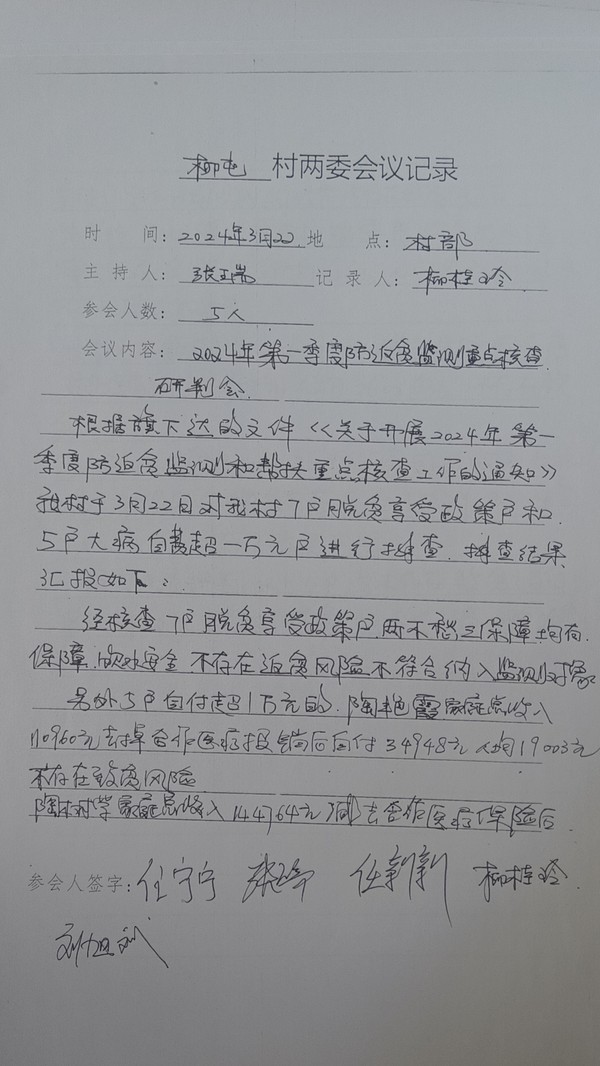 柳屯 村两委会议记录
时 间: 2024年3月22 地 点: 村部
主 持 人: 张玉瑞 记 录 人: 柳桂玲
参会人数: 5人
会议内容: 2024年第一季度防返贫监测重点核查
研判会
根据旗下达的文件《关于开展2024年第一
季度防返贫监测和帮扶重点核查工作的通知》
我村于3月22日对我村7户脱贫享受政策户和
5户大病自费超一万元户进行排查.排查结果
汇报如下:
经核查7户脱贫享受政策户两不愁三保障均有
保障.饮水安全.不存在返贫风险.不符合纳入监测对象
另外5户自付超1万元的.陶艳霞家庭总收入
110960元去掉合作医疗报销后自付34948元人均19003元
不存在致贫风险
陶树学家庭总收入144764元减去合作医疗保险后
参会人签字: 任宁宁 任新新 柳桂玲
刘旭斌